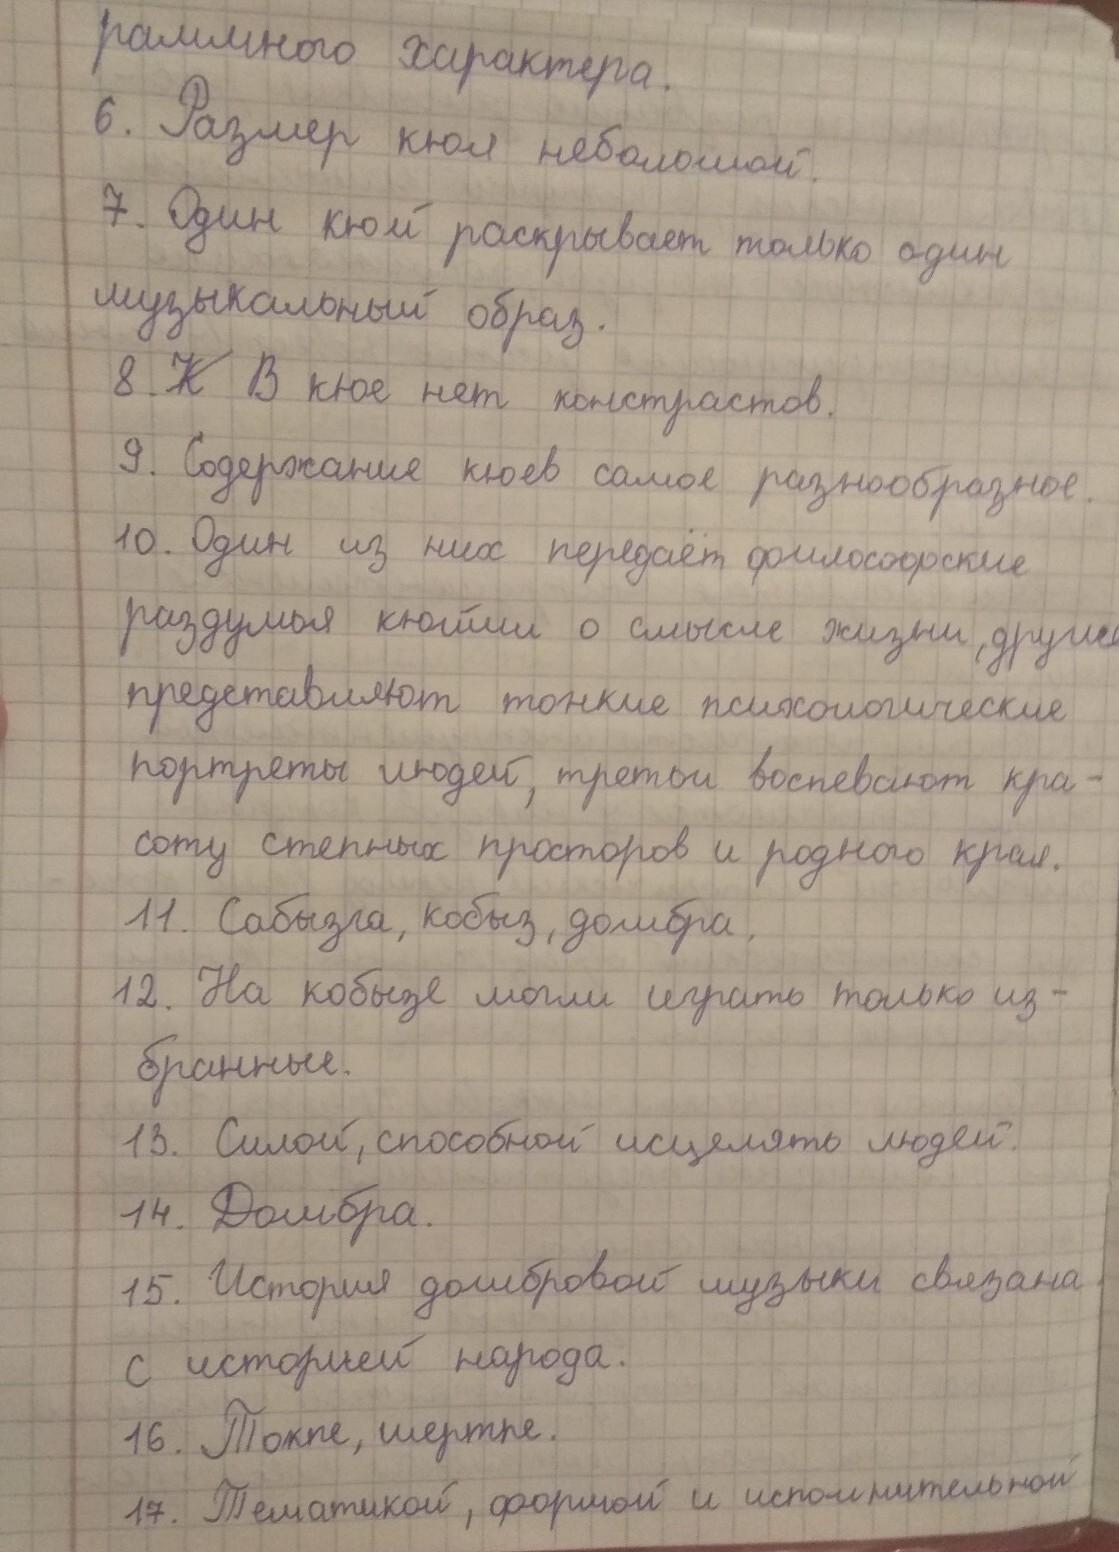 раммного характера.
6. Размер кюя небольшой.
7. Один кюй раскрывает только один
музыкальный образ.
8. К В кюе нет констрастов.
9. Содержание кюев самое разнообразное.
10. Один из них передаёт философские
раздумья кюйши о смысле жизни, другие
представляют тонкие психологические
портреты людей, третьи воспевают кра-
соту степных просторов и родного края.
11. Сабызга, кобыз, домбра.
12. На кобызе могли играть только из-
бранные.
13. Силой, способной исцелять людей.
14. Домбра.
15. История домбровой музыки связана
с историей народа.
16. Токпе, шертпе.
17. Тематикой, формой и исполнительной